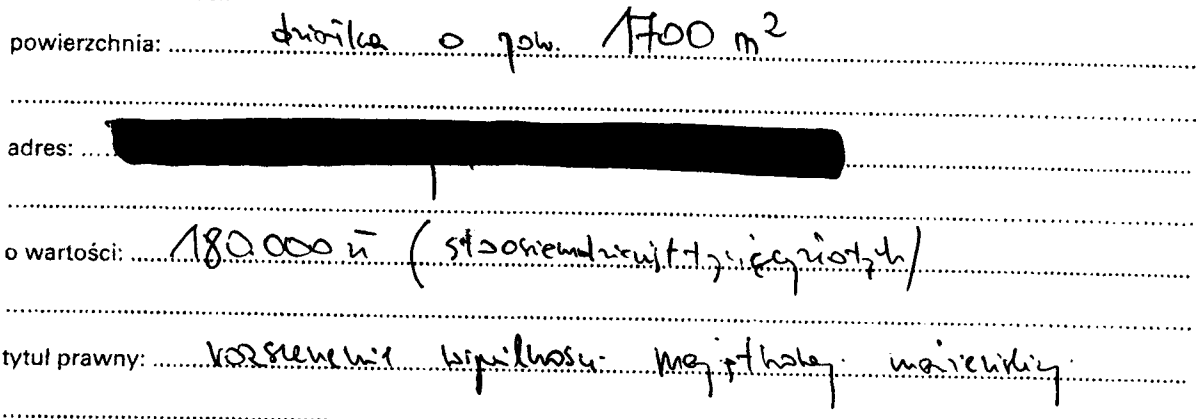 powierzchnia: działka o pow. 1700 m²
adres:
o wartości: 180.000 zł (sto osiemdziesiąt tysięcy złotych)
tytuł prawny: rozszerzenie wspólności majątkowej małżeńskiej